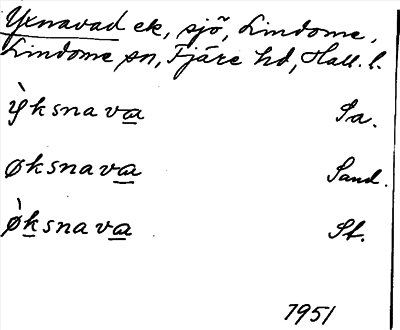 Yxnavad ek, sjö, Lindome,
Lindome sn, Fjäre hd, Hall. l.
ỳksnava Sa.
øksnava Sand.
ø̀ksnava St.
1951